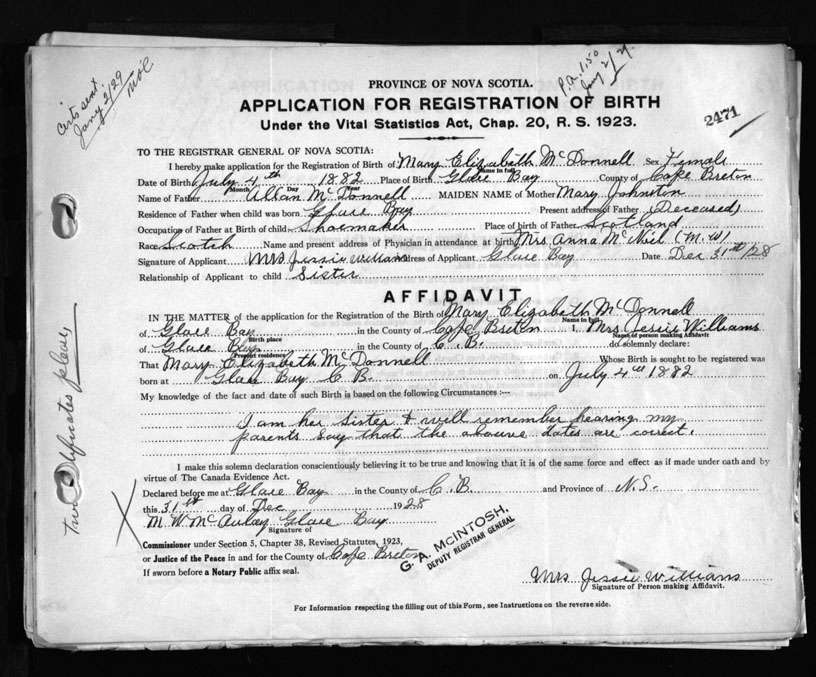 Certs sent
Jany 2/29
P.a. 1.50
Jany 2/29
2471
PROVINCE OF NOVA SCOTIA.
APPLICATION FOR REGISTRATION OF BIRTH
Under the Vital Statistics Act, Chap. 20, R. S. 1923.
TO THE REGISTRAR GENERAL OF NOVA SCOTIA:
I hereby make application for the Registration of Birth of Mary Elizabeth McDonnell Sex Female
Name in full
Date of Birth July 4th 1882 Place of Birth Glace Bay County of Cape Breton
Month Day Year
Name of Father Allan McDonnell MAIDEN NAME of Mother Mary Johnston
Residence of Father when child was born Glace Bay Present address of Father (Deceased)
Occupation of Father at Birth of child Shoemaker Place of birth of Father Scotland
Race Scotch Name and present address of Physician in attendance at birth Mrs Anna McNeil (M.W)
Signature of Applicant Mrs Jessie Williams Address of Applicant Glace Bay Date Dec 31st/28
Relationship of Applicant to child Sister
AFFIDAVIT
IN THE MATTER of the application for the Registration of the Birth of Mary Elizabeth McDonnell
Name in full
of Glace Bay in the County of Cape Breton I, Mrs Jessie Williams
Birth place Name of person making Affidavit
of Glace Bay in the County of C. B. do solemnly declare:
Present residence
That Mary Elizabeth McDonnell Whose Birth is sought to be registered was
born at Glace Bay C B. on July 4th 1882
My knowledge of the fact and date of such Birth is based on the following Circumstances :—
I am her sister & well remember hearing my
parents say that the above dates are correct.
I make this solemn declaration conscientiously believing it to be true and knowing that it is of the same force and effect as if made under oath and by
virtue of The Canada Evidence Act.
Declared before me at Glace Bay in the County of C. B. and Province of N.S.
this 31st day of Dec 1928
M. W. McAulay Glace Bay
Signature of
Commissioner under Section 5, Chapter 38, Revised Statutes, 1923,
or Justice of the Peace in and for the County of Cape Breton
If sworn before a Notary Public affix seal.
G. A. McINTOSH,
DEPUTY REGISTRAR GENERAL
Mrs Jessie Williams
Signature of Person making Affidavit.
For Information respecting the filling out of this Form, see Instructions on the reverse side.
two Certificates please